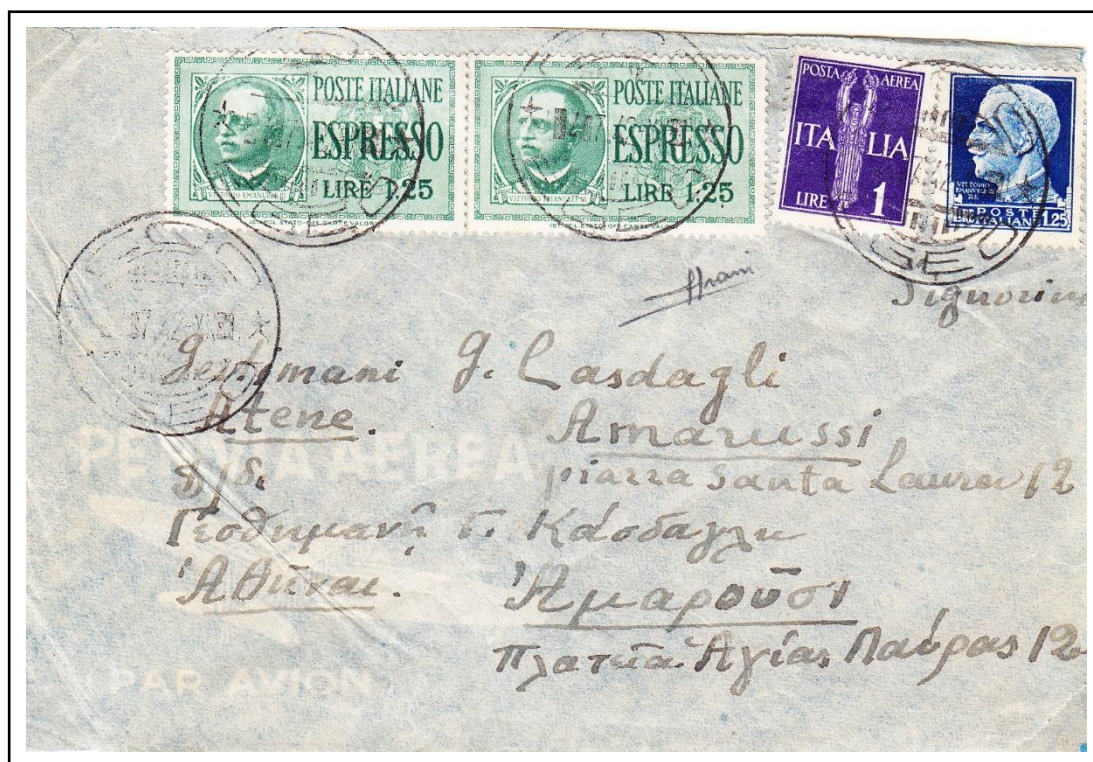 POSTE ITALIANE
ESPRESSO
LIRE 1.25
VITTORIO EMANUELE III
POSTE ITALIANE
ESPRESSO
LIRE 1.25
VITTORIO EMANUELE III
POSTA AEREA
ITALIA
LIRE 1
POSTE
ITALIANE 1.25
Signorina
Gestimani G. Casdagli
Atene. Amarussi
piazza Santa Laura 12
Γεσθημανή Γ. Κάσδαγλη
Ἀθῆναι. Ἀμαροῦσι
Πλατεῖα Ἁγίας Λαύρας 12
PER VIA AEREA
PAR AVION